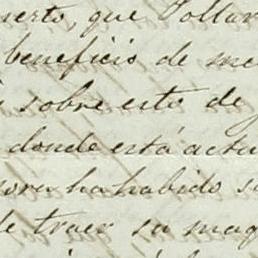 que Pollar
beneficio de me
sobre esto de
donde está actu
ha habido s
de traer su maq